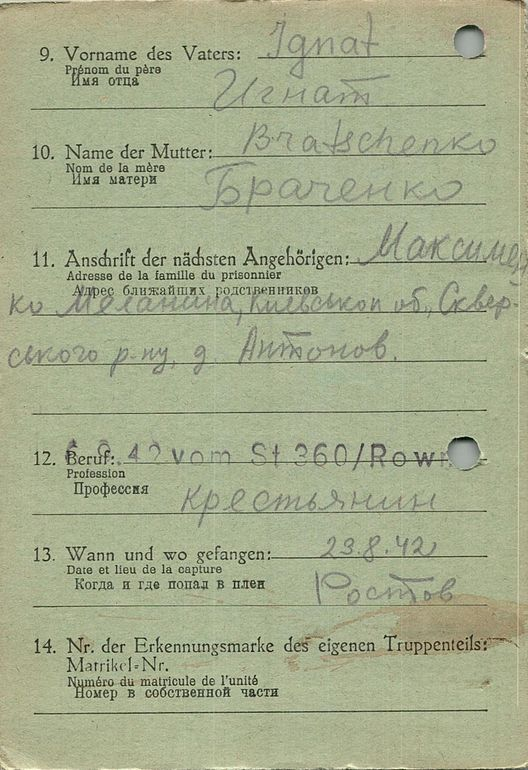 9. Vorname des Vaters: Ignat
Prénom du père
Имя отца
Игнат
10. Name der Mutter: Bratschenko
Nom de la mère
Имя матери
Браченко
11. Anschrift der nächsten Angehörigen: Максимен
Adresse de la famille du prisonnier
Адрес ближайших родственников
ко Меланина, Киевской об., Сквер-
ського р-ну, д. Антонов.
12. Beruf: 42 vom St 360/Rown
Profession
Профессия
крестьянин
13. Wann und wo gefangen: 23.8.42
Date et lieu de la capture
Когда и где попал в плен
Ростов
14. Nr. der Erkennungsmarke des eigenen Truppenteils:
Matrikel-Nr.
Numéro du matricule de l'unité
Номер в собственной части